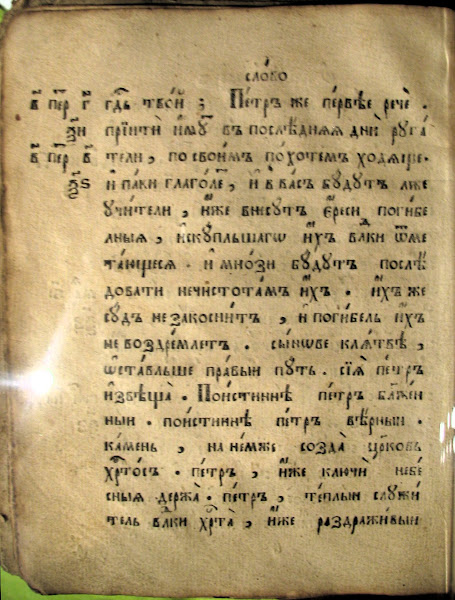 сло́во
в҃ пе́р г҃ гдⷭ҇ь тво́й ; Пе́тръ же пе́рвѣе рече̏ .
҂зн прїи́тѝ и́мꙋ́т въ послѣ́днѧѧ дни̏ рꙋга́
в҃ пе́р в҃ тели , по свои́мъ по́хотемъ ходѧ́ще .
и҆ па́ки глаго́ле , и҆ в ва́съ бꙋ́дꙋтъ лже
ꙋчи́тели , и҆́же внесꙋ́тъ є҆́реси поги́бе
лныѧ , и҆скꙋ́пльшагѡ и҆́хъ влⷣки ѿме
та́ющесѧ . и҆ мно́зи бꙋ́дꙋтъ послѣ́
довати нечистота́мъ и҆́хъ . и҆́хъ же
сꙋ́дъ не зако́снитъ , и҆ поги́бель и҆́хъ
не воздре́млетъ . сы́нове клѧ́твѣ ,
ѡ҆ста́вльше пра́выи пꙋ́ть . сїѧ̑ пе́тръ
и҆звѣща̀ . Пои́стиннѣ пе́тръ бл҃же́н
ныи . пои́стиннѣ пе́тръ вѣ́рныи .
ка́мень , на не́мже созда̀ цр҃ковь
хрⷭ҇то́съ . пе́тръ , и҆́же ключи̏ небе́
сныѧ держа̀ . пе́тръ , те́плыи слꙋжи́
тель влⷣки хрⷭ҇та̀ , и҆́же раздражи́выи